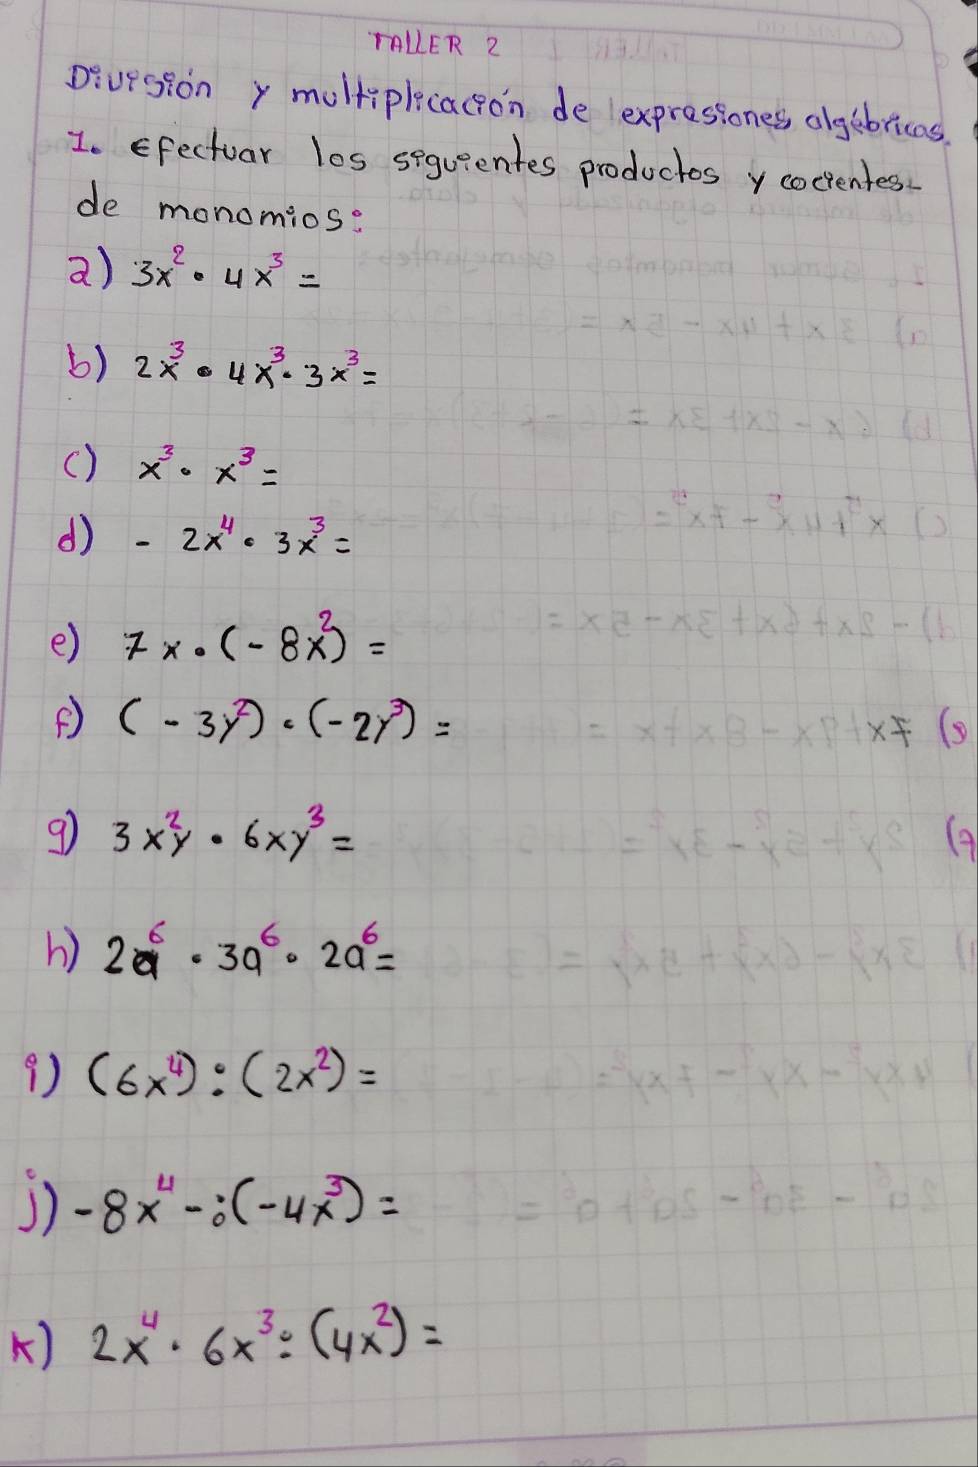 TALLER 2
División y multiplicación de expresiones algébricas.
I. Efectuar los siguientes productos y cocientes-
de monomios:
a) 3x² · 4x³ =
b) 2x³ · 4x³ · 3x³ =
c) x³ · x³ =
d) - 2x⁴ · 3x³ =
e) 7x · (-8x²) =
f) (-3y²) · (-2y³) =
g) 3x²y · 6xy³ =
h) 2a⁶ · 3a⁶ · 2a⁶ =
i) (6x⁴) : (2x²) =
j) -8x⁴ -: (-4x³) =
k) 2x⁴ · 6x³ ÷ (4x²) =